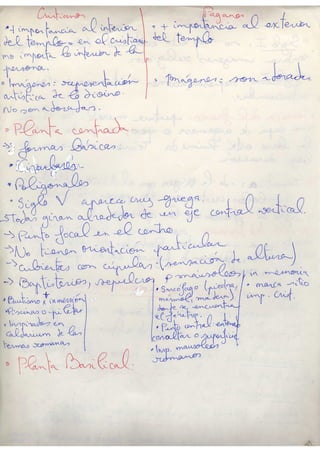 Cristianos
Paganos
• + importancia al interior
del templo. en el cristiano
no importa lo interior de la
persona.
• Imágenes: representación
artística de lo divino.
No son adoradas.
• + importancia al exterior
del templo
• Imágenes: son adoradas
• Planta centrada
→ formas básicas:
• Circulares.
• Poligonales
• Siglo V aparece cruz griega.
→ Todas giran alrededor de un eje central vertical.
→ Punto focal en el centro.
→ No tienen orientación particular
→ cubiertas con cúpulas: (sensación de altura)
→ Baptisterios, sepulcros o mausoleos, in memoria
• Bautismo x inmersión
• Piscinas o piletas
• Inspirados en
caldarium de las
termas romanas
• Sarcófago (piedra,
mármol, madera)
donde se encuentra
el féretro.
• Punto central: enterrado
con altar o superficie
• Insp. mausoleos
romanos.
• marca sitio
imp. Crist.
• Planta Basilical.